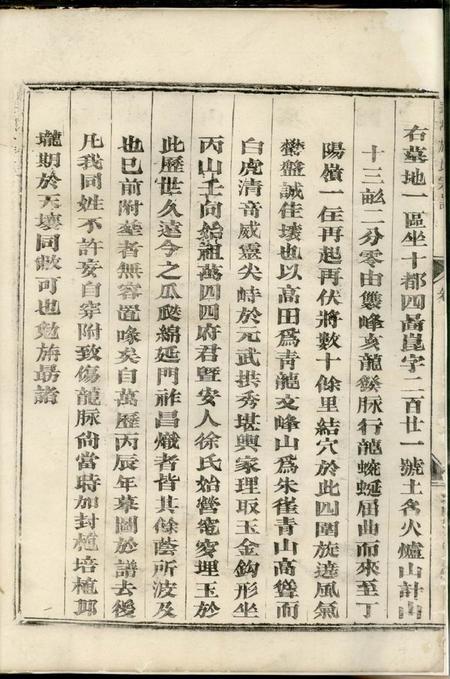 右墓地一區坐十都四啚崑字二百廿一號土名火爐山計山
十三畝二分零由雙峰亥龍發脉行龍蜿蜒屈曲而來至丁
陽嶺一住再起再伏將數十餘里結穴於此四圍旋遶風氣
欝盤誠佳壤也以高田爲靑龍文峰山爲朱雀青山高聳而
白虎清音威靈尖峙於元武拱秀堪輿家理取玉金鈎形坐
丙山壬向始祖萬四四府君曁安人徐氏始營窀穸埋玉於
此歷世久遠今之瓜瓞綿延門祚昌熾者皆其餘蔭所波及
也已前附塟者無容置喙矣自萬歷丙辰年墓圖於譜去後
凡我同姓不許妄自穿附致傷龍脉尚當時加封植培植邱
壠期於天壤同敝可也勉旃勗諸